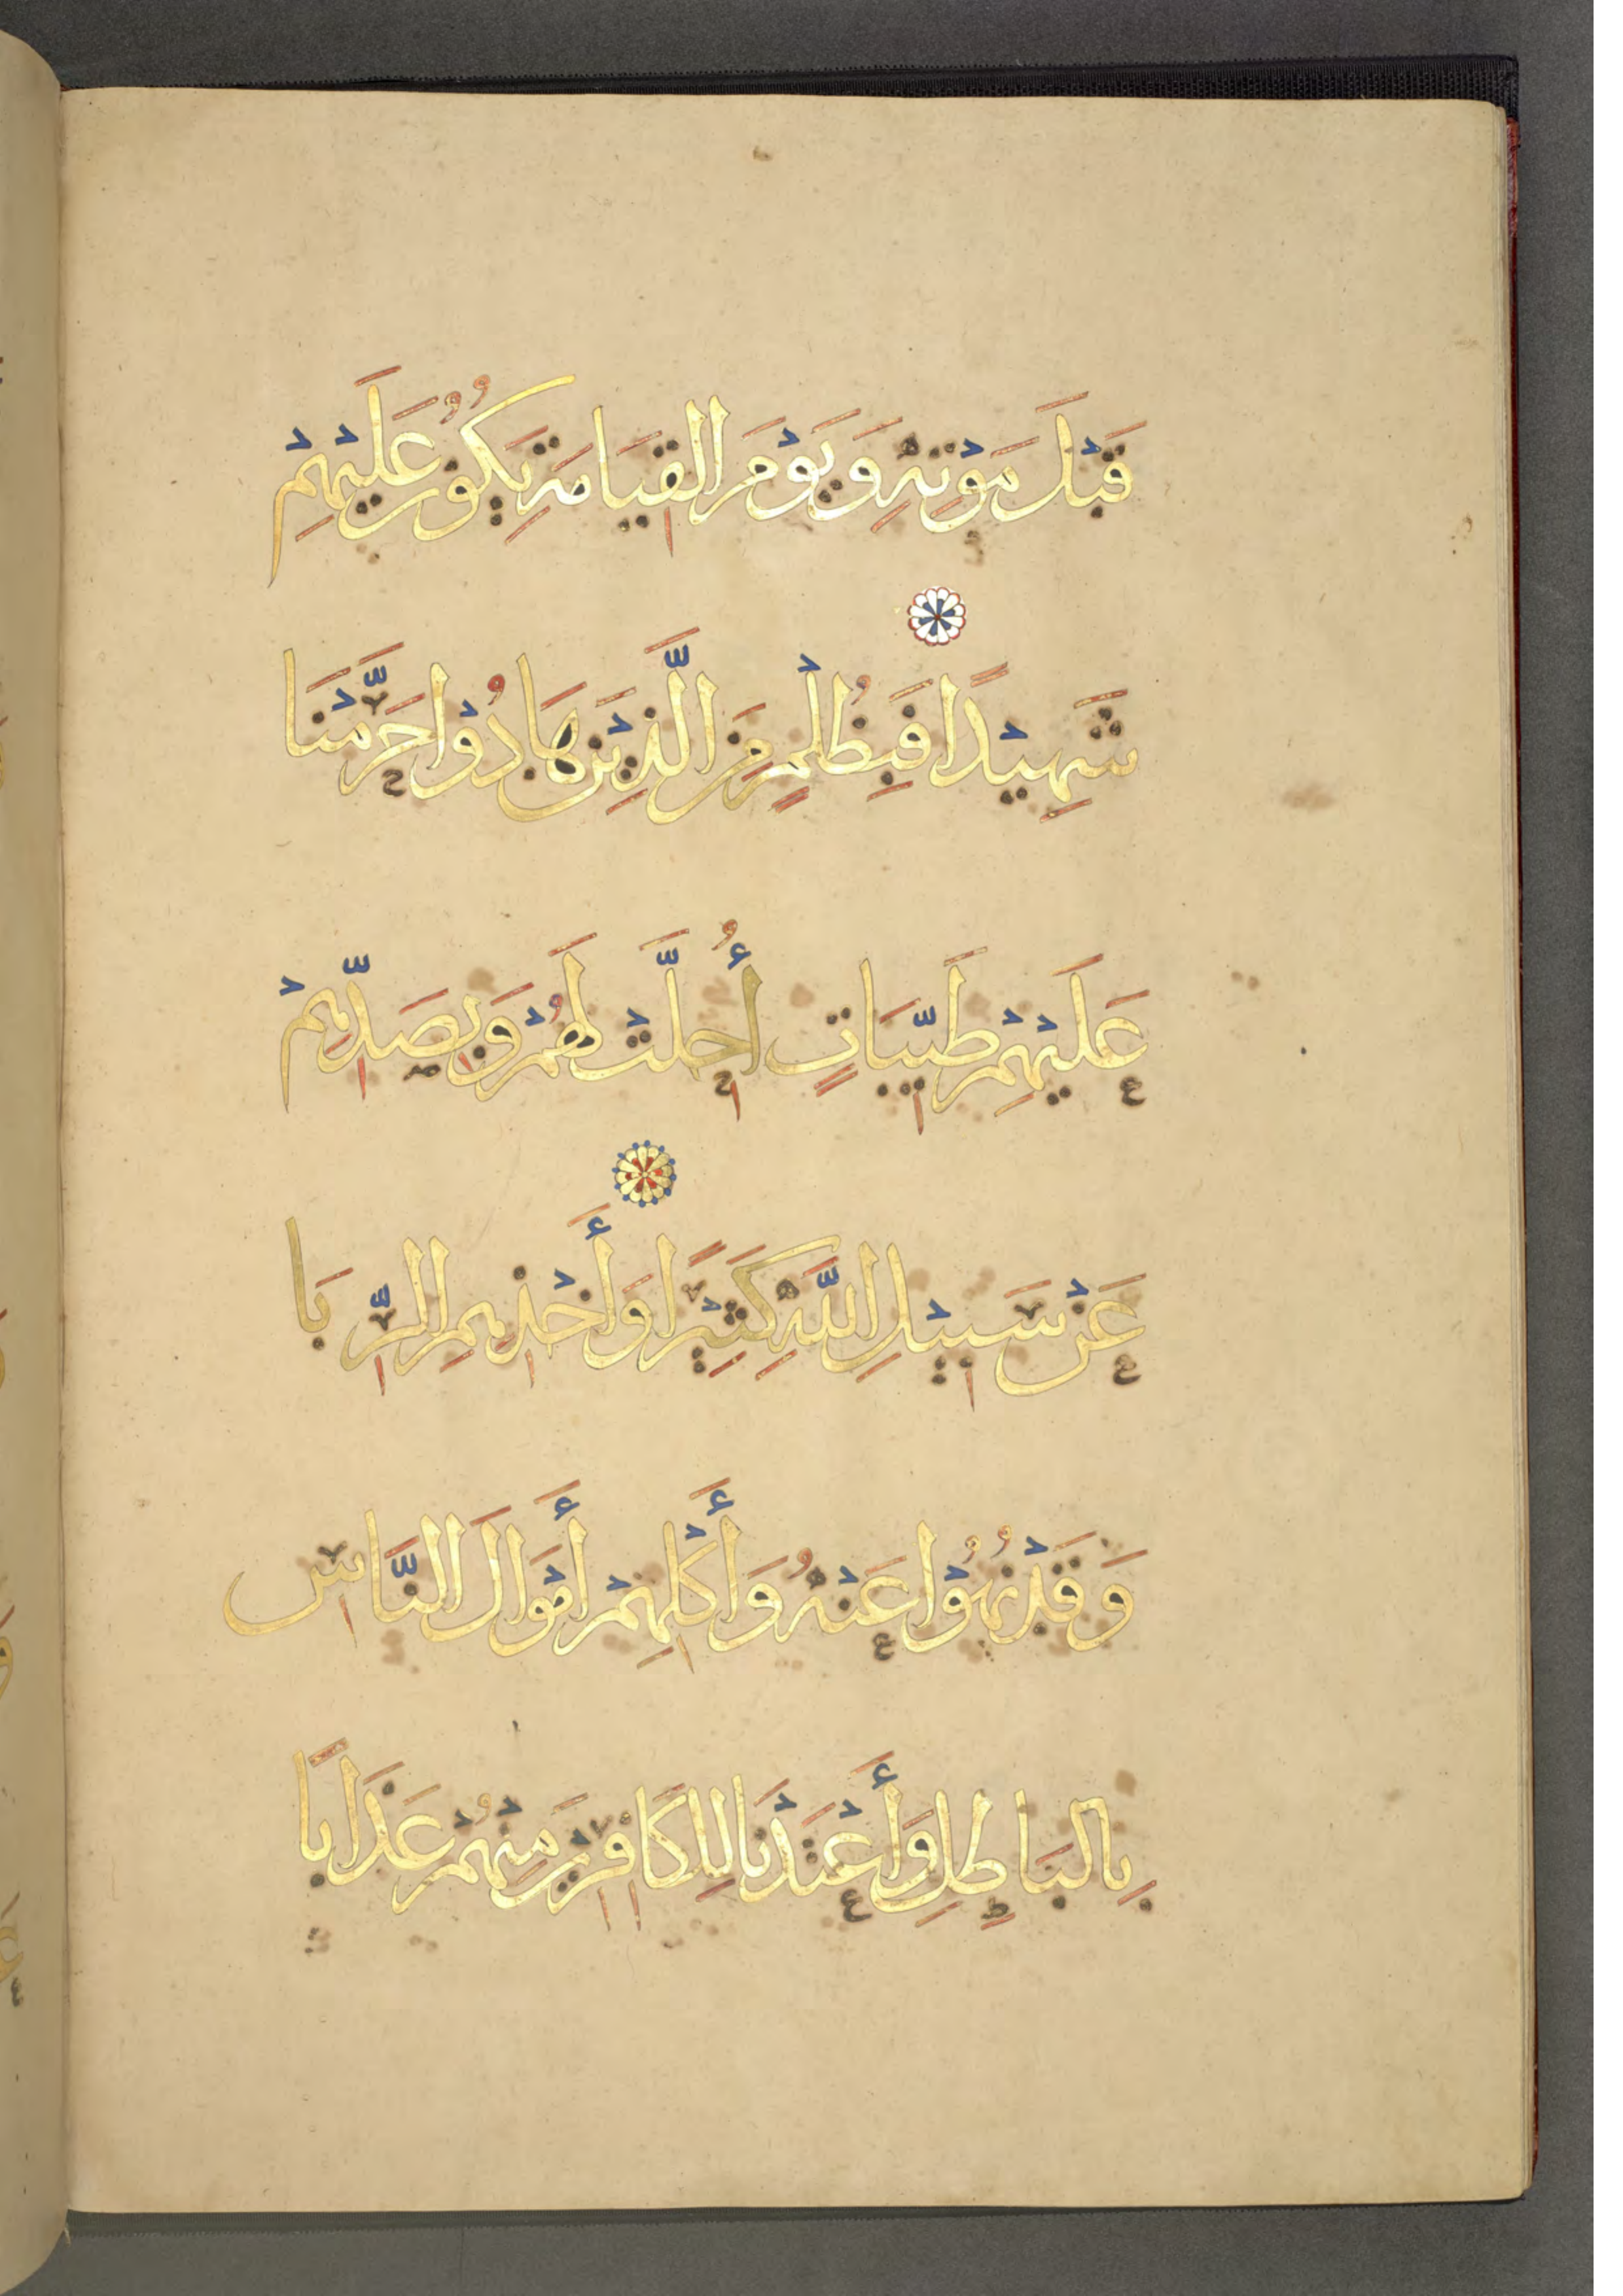 قَبْلَ مَوْتِهِ وَيَوْمَ القِيَامَةِ يَكُوْنُ عَلَيْهِمْ
شَهِيْدًا فَبِظُلْمٍ مِنَ الَّذِيْنَ هَادُوْا حَرَّمْنَا
عَلَيْهِمْ طَيِّبَاتٍ أُحِلَّتْ لَهُمْ وَبِصَدِّهِمْ
عَنْ سَبِيْلِ اللَّهِ كَثِيْرًا وَأَخْذِهِمِ الرِّبَا
وَقَدْ نُهُوْا عَنْهُ وَأَكْلِهِمْ أَمْوَالَ النَّاسِ
بِالبَاطِلِ وَأَعْتَدْنَا لِلكَافِرِيْنَ مِنْهُمْ عَذَابًا